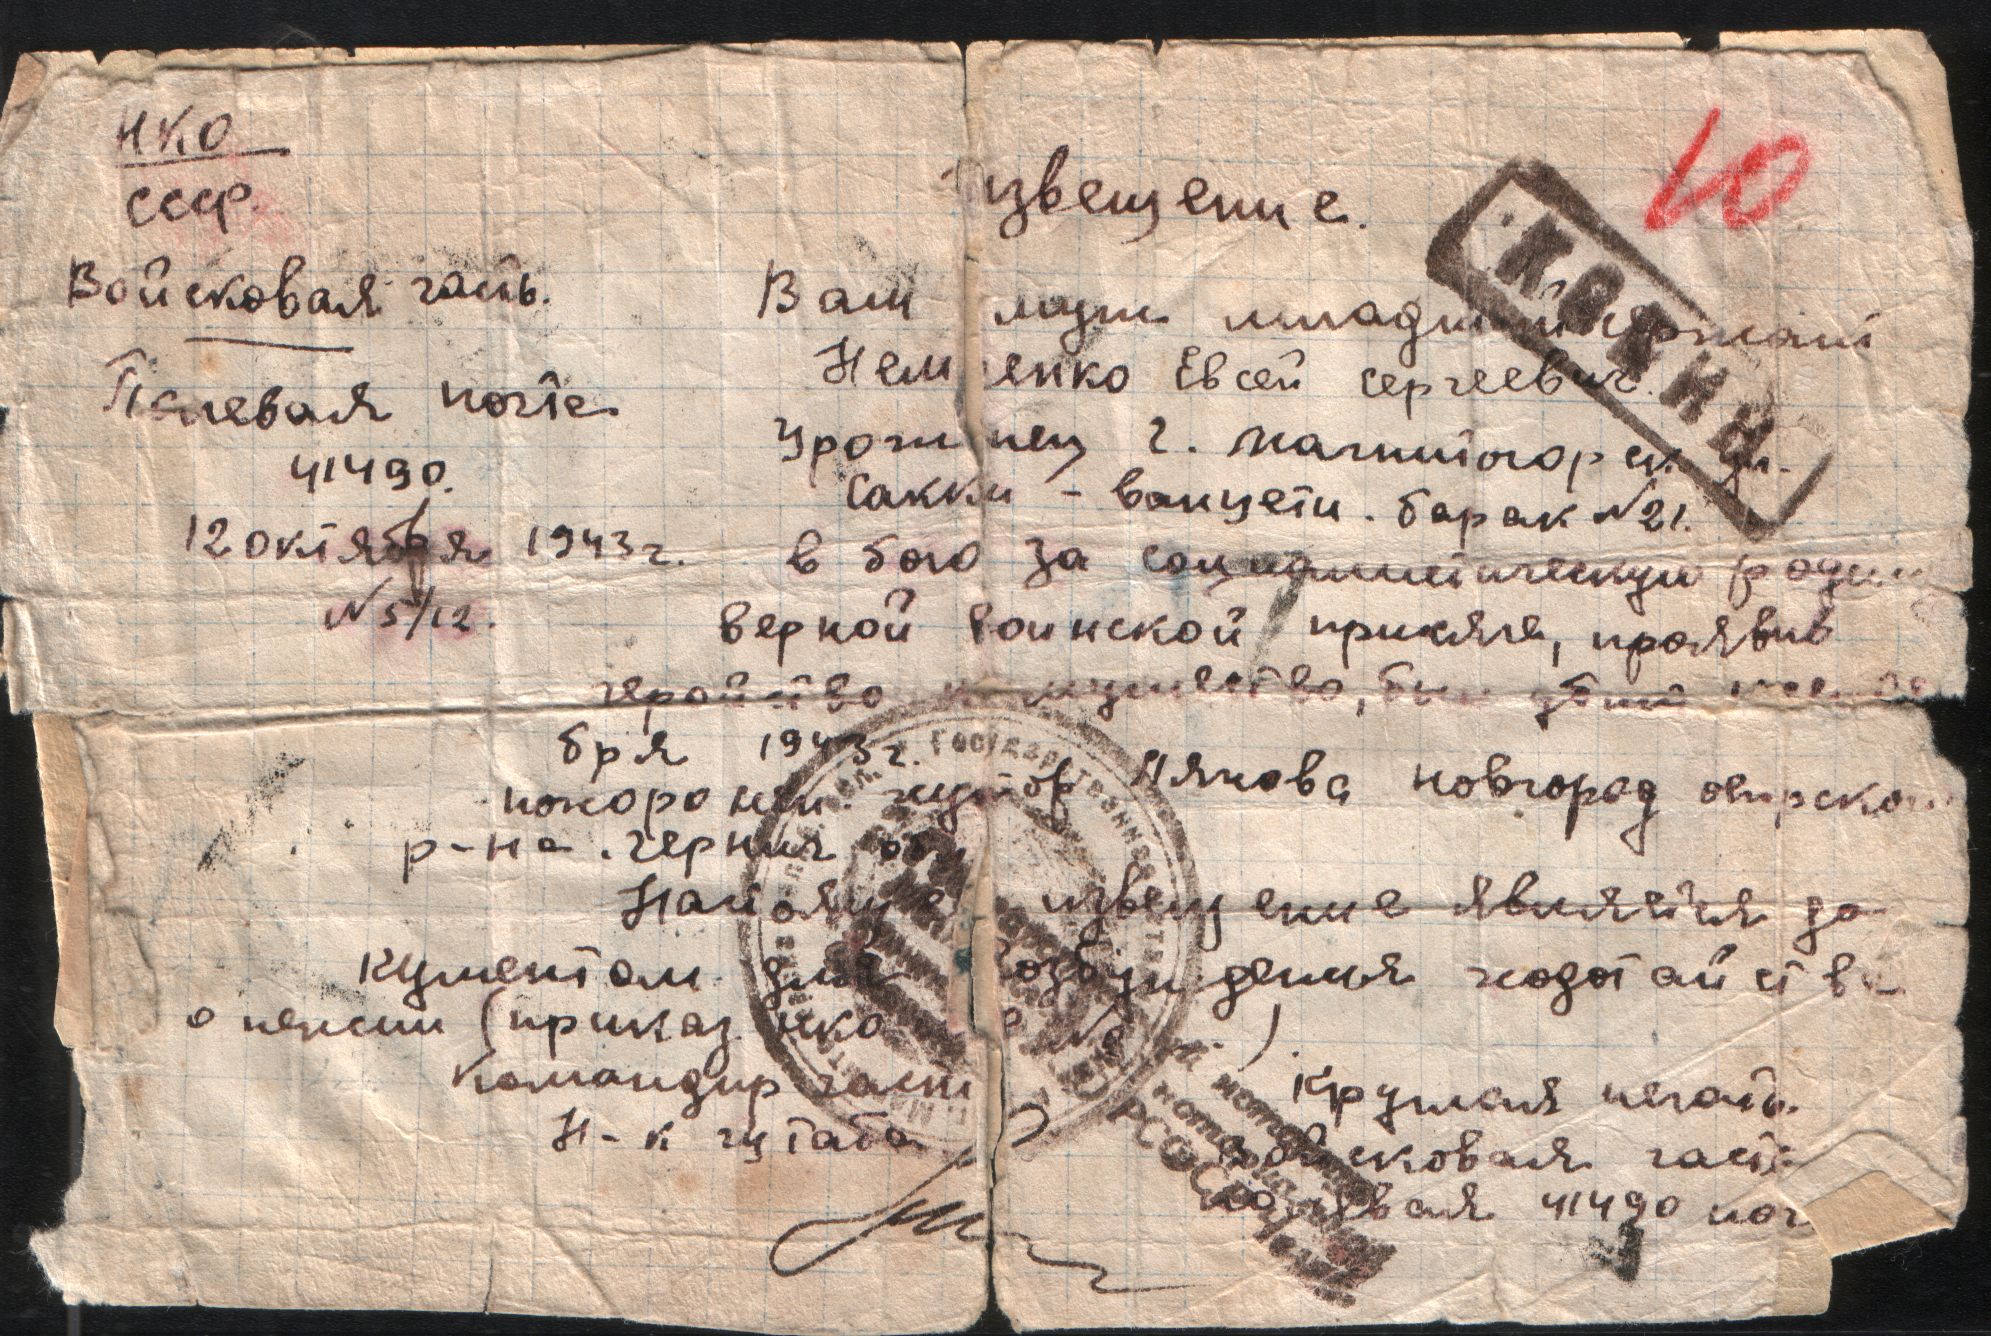 НКО
СССР.
Войсковая часть.
Полевая почта
41490.
12 октября 1943 г.
№ 5/12.
10
КОПИЯ
извещение.
Ваш муж младший сержант
Евсей Сергеевич.
Уроженец г. Магнитогорск ул.
Сакки - Ванцети. барак № 21.
в бою за социалистическую родину
верной воинской присяге, проявив
геройство и мужество, был убит
бря 1943 г.
похоронен. хутор Новгород
р-на. Черниг обл
Настоящее извещение является до
кументом для возбуждения ходотайства
о пенсии (приказ НКО №)
Командир части
Н-к штаба
Круглая печать
войсковая часть
полевая 41490 поч
Государственной
РСФСР